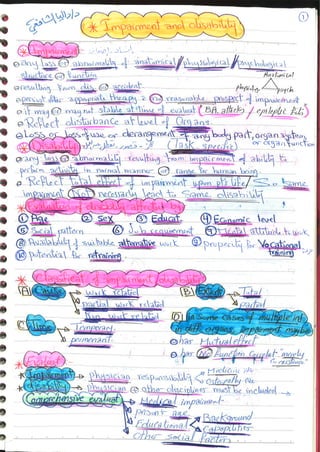 ①
* Impairment and disability
* Impairment
any loss or abnormality of anatomical / physiological / psychological
structure or function
Anatomical
physio psych
resulting from dis or accident
persist after appropriate therapy & no reasonable prospect of improvement
it may or may not stable at time of evaluat (BA attacks / epileptic fits)
Reflect disturbance at level of organs
Loss of use or derangement of any body part, organ system
or organ function
Disability
Task specific
any loss or abnormality resulting from impairment of ability to
perform activity in normal manner or range for human being
Reflect total effect of impairment upon pt life So same
impairment not necessarily lead to same disability
① Age ② Sex ③ Educat ④ Economic level
⑤ Social pattern ⑥ Job requirement ⑦ mental attitude to work
⑧ Availability of suitable alternative work ⑨ propensity for vocational
training
⑩ potential for retraining
[A] Causes
work related
partial work related
Non work related
[B] Total
partial
[C]
Temporary
permanent
[D] in some cases of multiple inj
in diff organs, impairment may be
has Mutual effect
has No function Complet merely
* Impairment → physician responsibility
* disability → physician & other disciplines must be included
Comprehensive evaluat → Medical impairment
present age
Educational
Background
Capabilities
other social factors